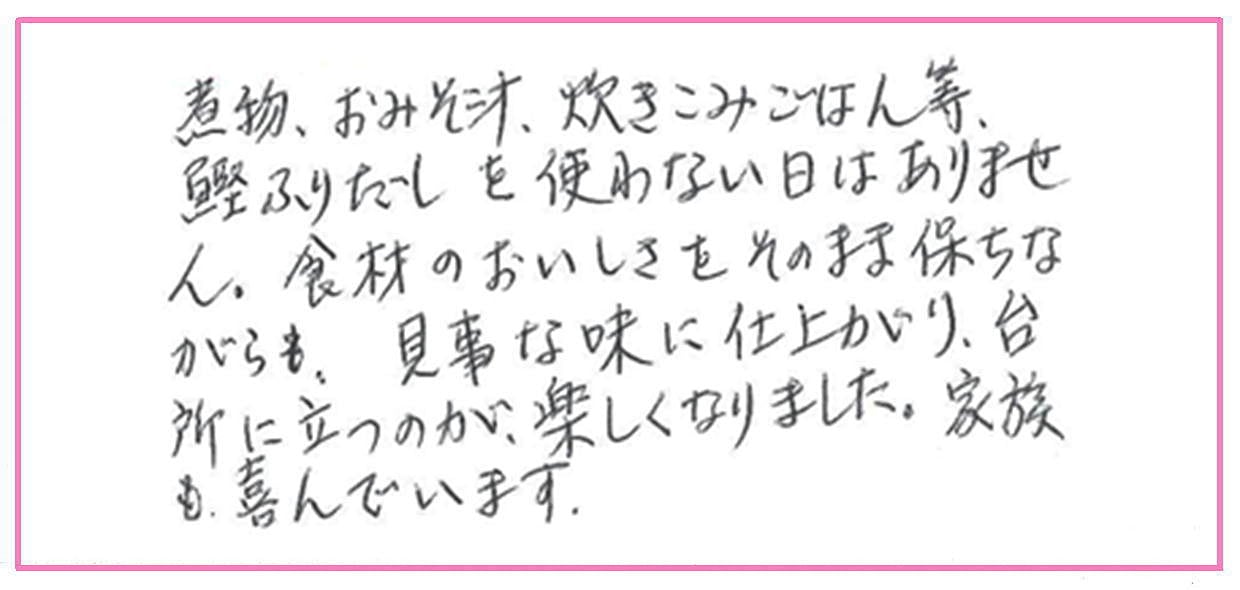 煮物、おみそ汁、炊きこみごはん等、
鰹ふりだしを使わない日はありませ
ん。食材のおいしさをそのまま保ちな
がらも、見事な味に仕上がり、台
所に立つのが、楽しくなりました。家族
も、喜んでいます。